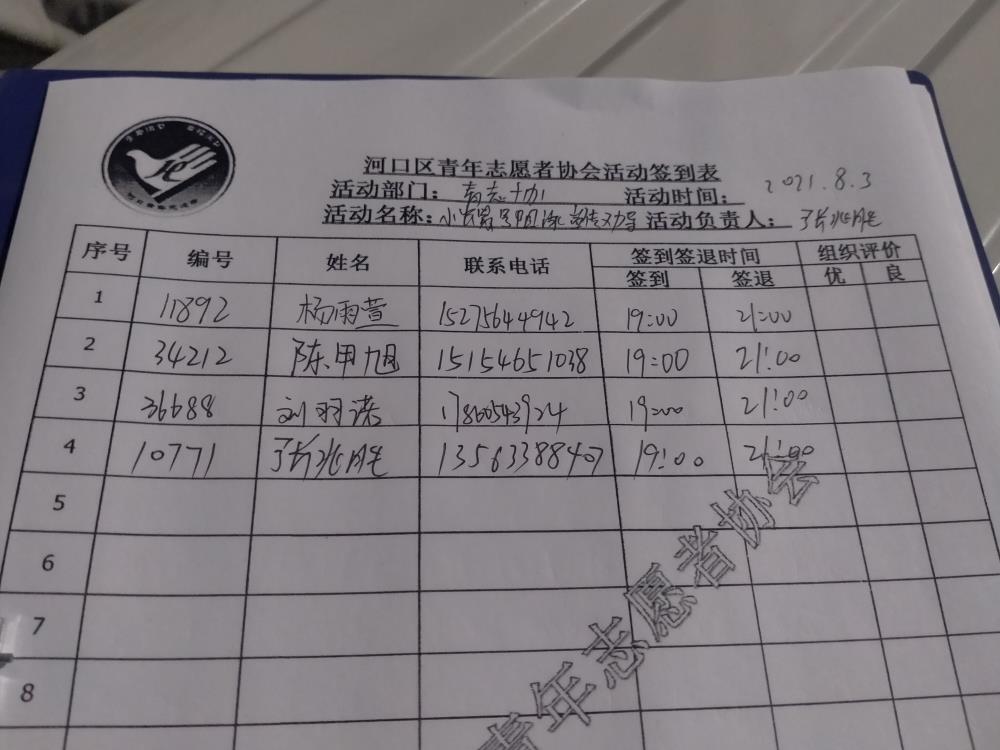 河口区青年志愿者协会活动签到表
活动部门：青志协 活动时间：2021.8.3
活动名称： 活动负责人：张兆胜
序号 编号 姓名 联系电话 签到签退时间 组织评价
签到 签退 优 良
1 11892 杨雨萱 15275644942 19:00 21:00
2 34212 陈甲旭 15154651038 19:00 21:00
3 36688 刘羽诺 17860543924 19:00 21:00
4 10771 张兆胜 13563388407 19:00 21:00
5
6
7
8
青年志愿者协会